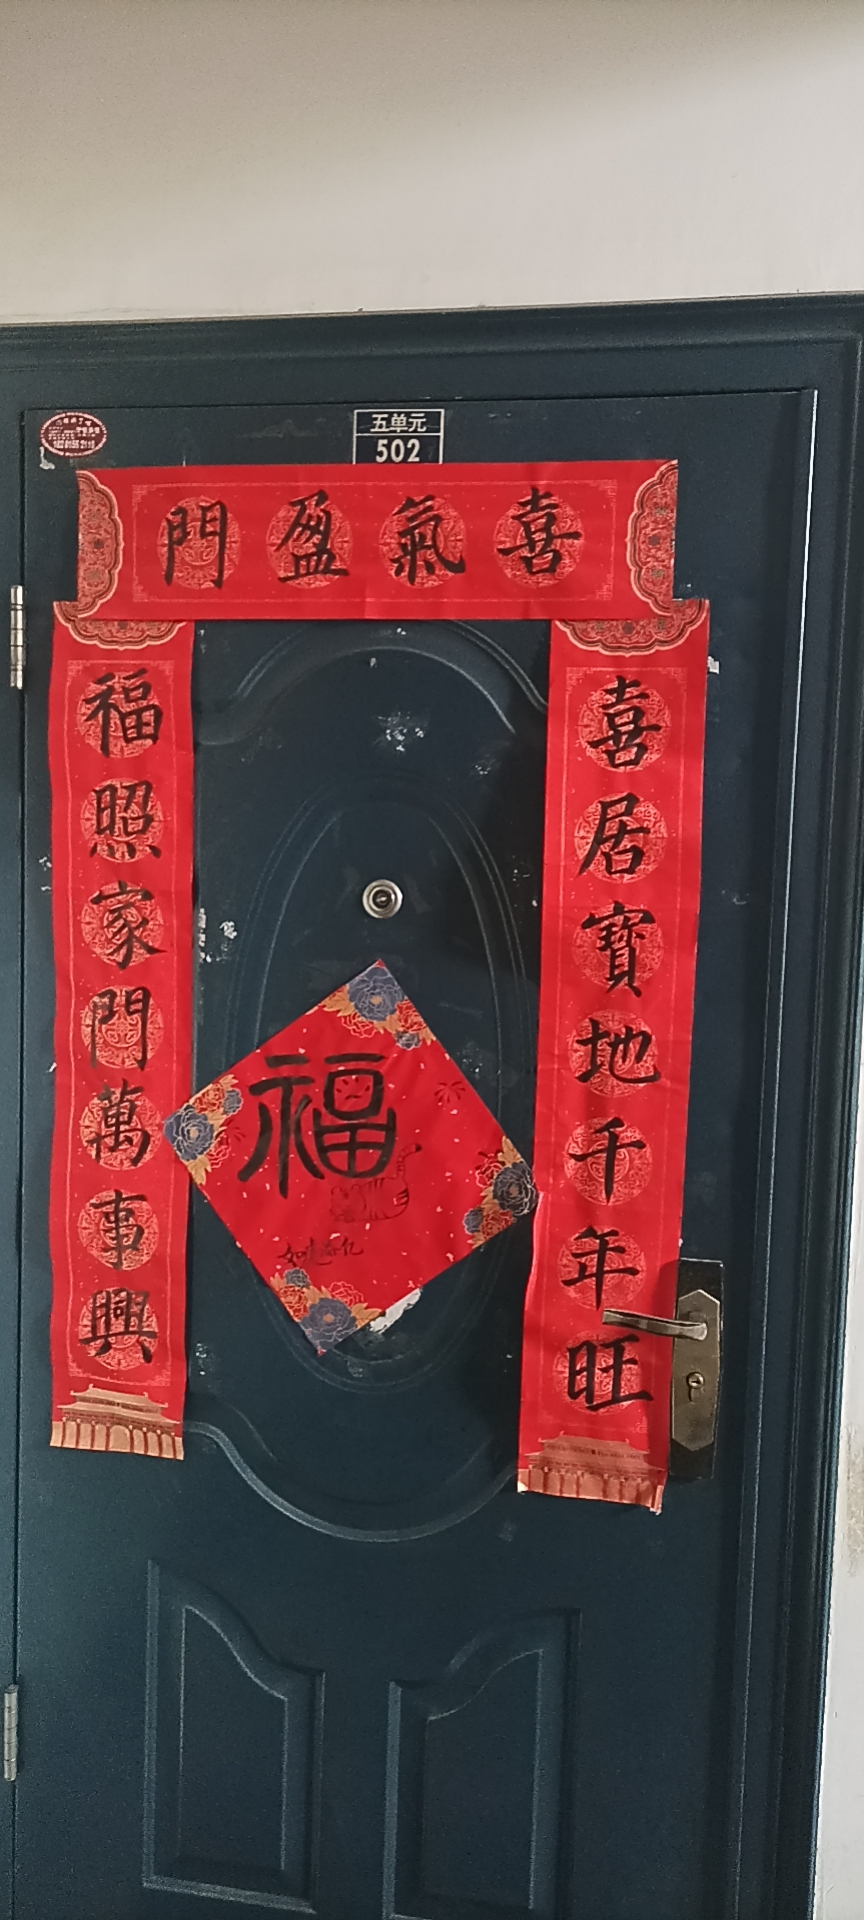 五单元
502
喜氣盈門
喜居寶地千年旺
福照家門萬事興
福